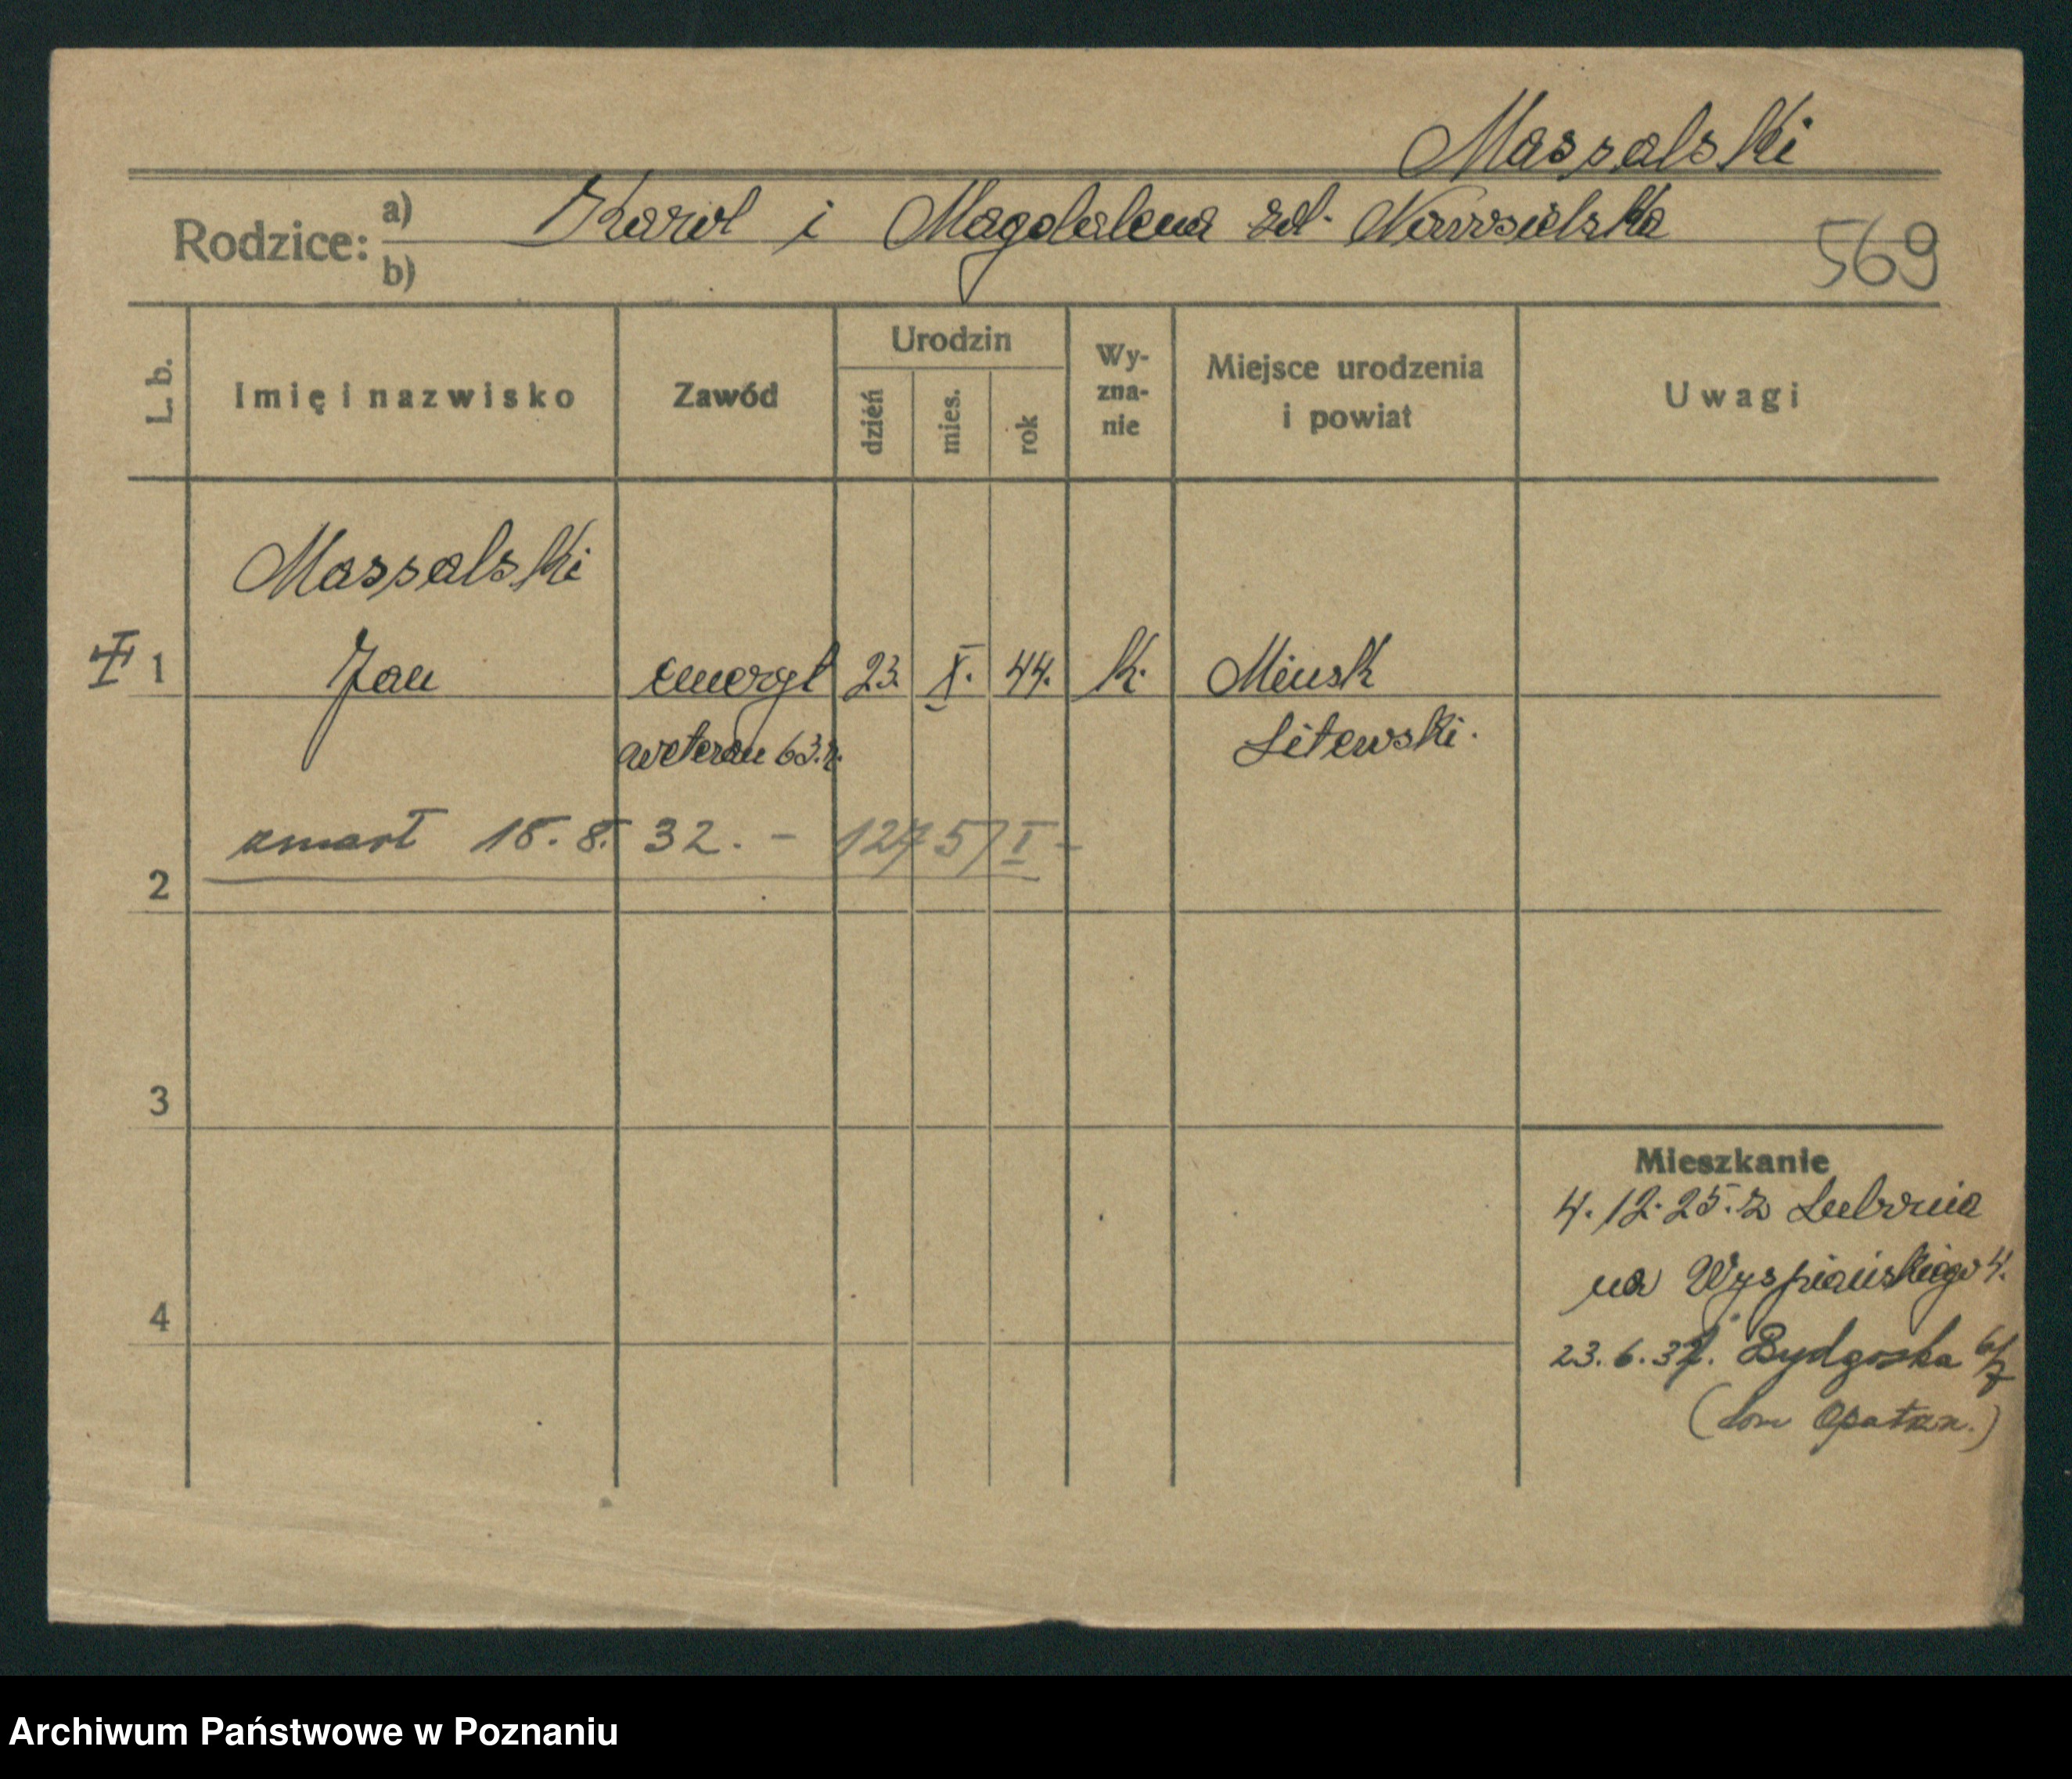 Massalski
Rodzice: a) Karol i Magdalena zd. Nowosielska
b)
569
L. b.
Imię i nazwisko
Zawód
Urodzin
dzień
mies.
rok
Wy-
zna-
nie
Miejsce urodzenia
i powiat
Uwagi
Massalski
1 Jan emeryt 23. X. 44. k. Minsk
weteran 63.r. Litewski.
zmarł 18.8.32. - 1275/I -
2
3
4
Mieszkanie
4.12.25. z Lubonia
na Wyspiańskiego 4.
23.6.32. Bydgoska 6/7
(dom Opatrzn.)
Archiwum Państwowe w Poznaniu